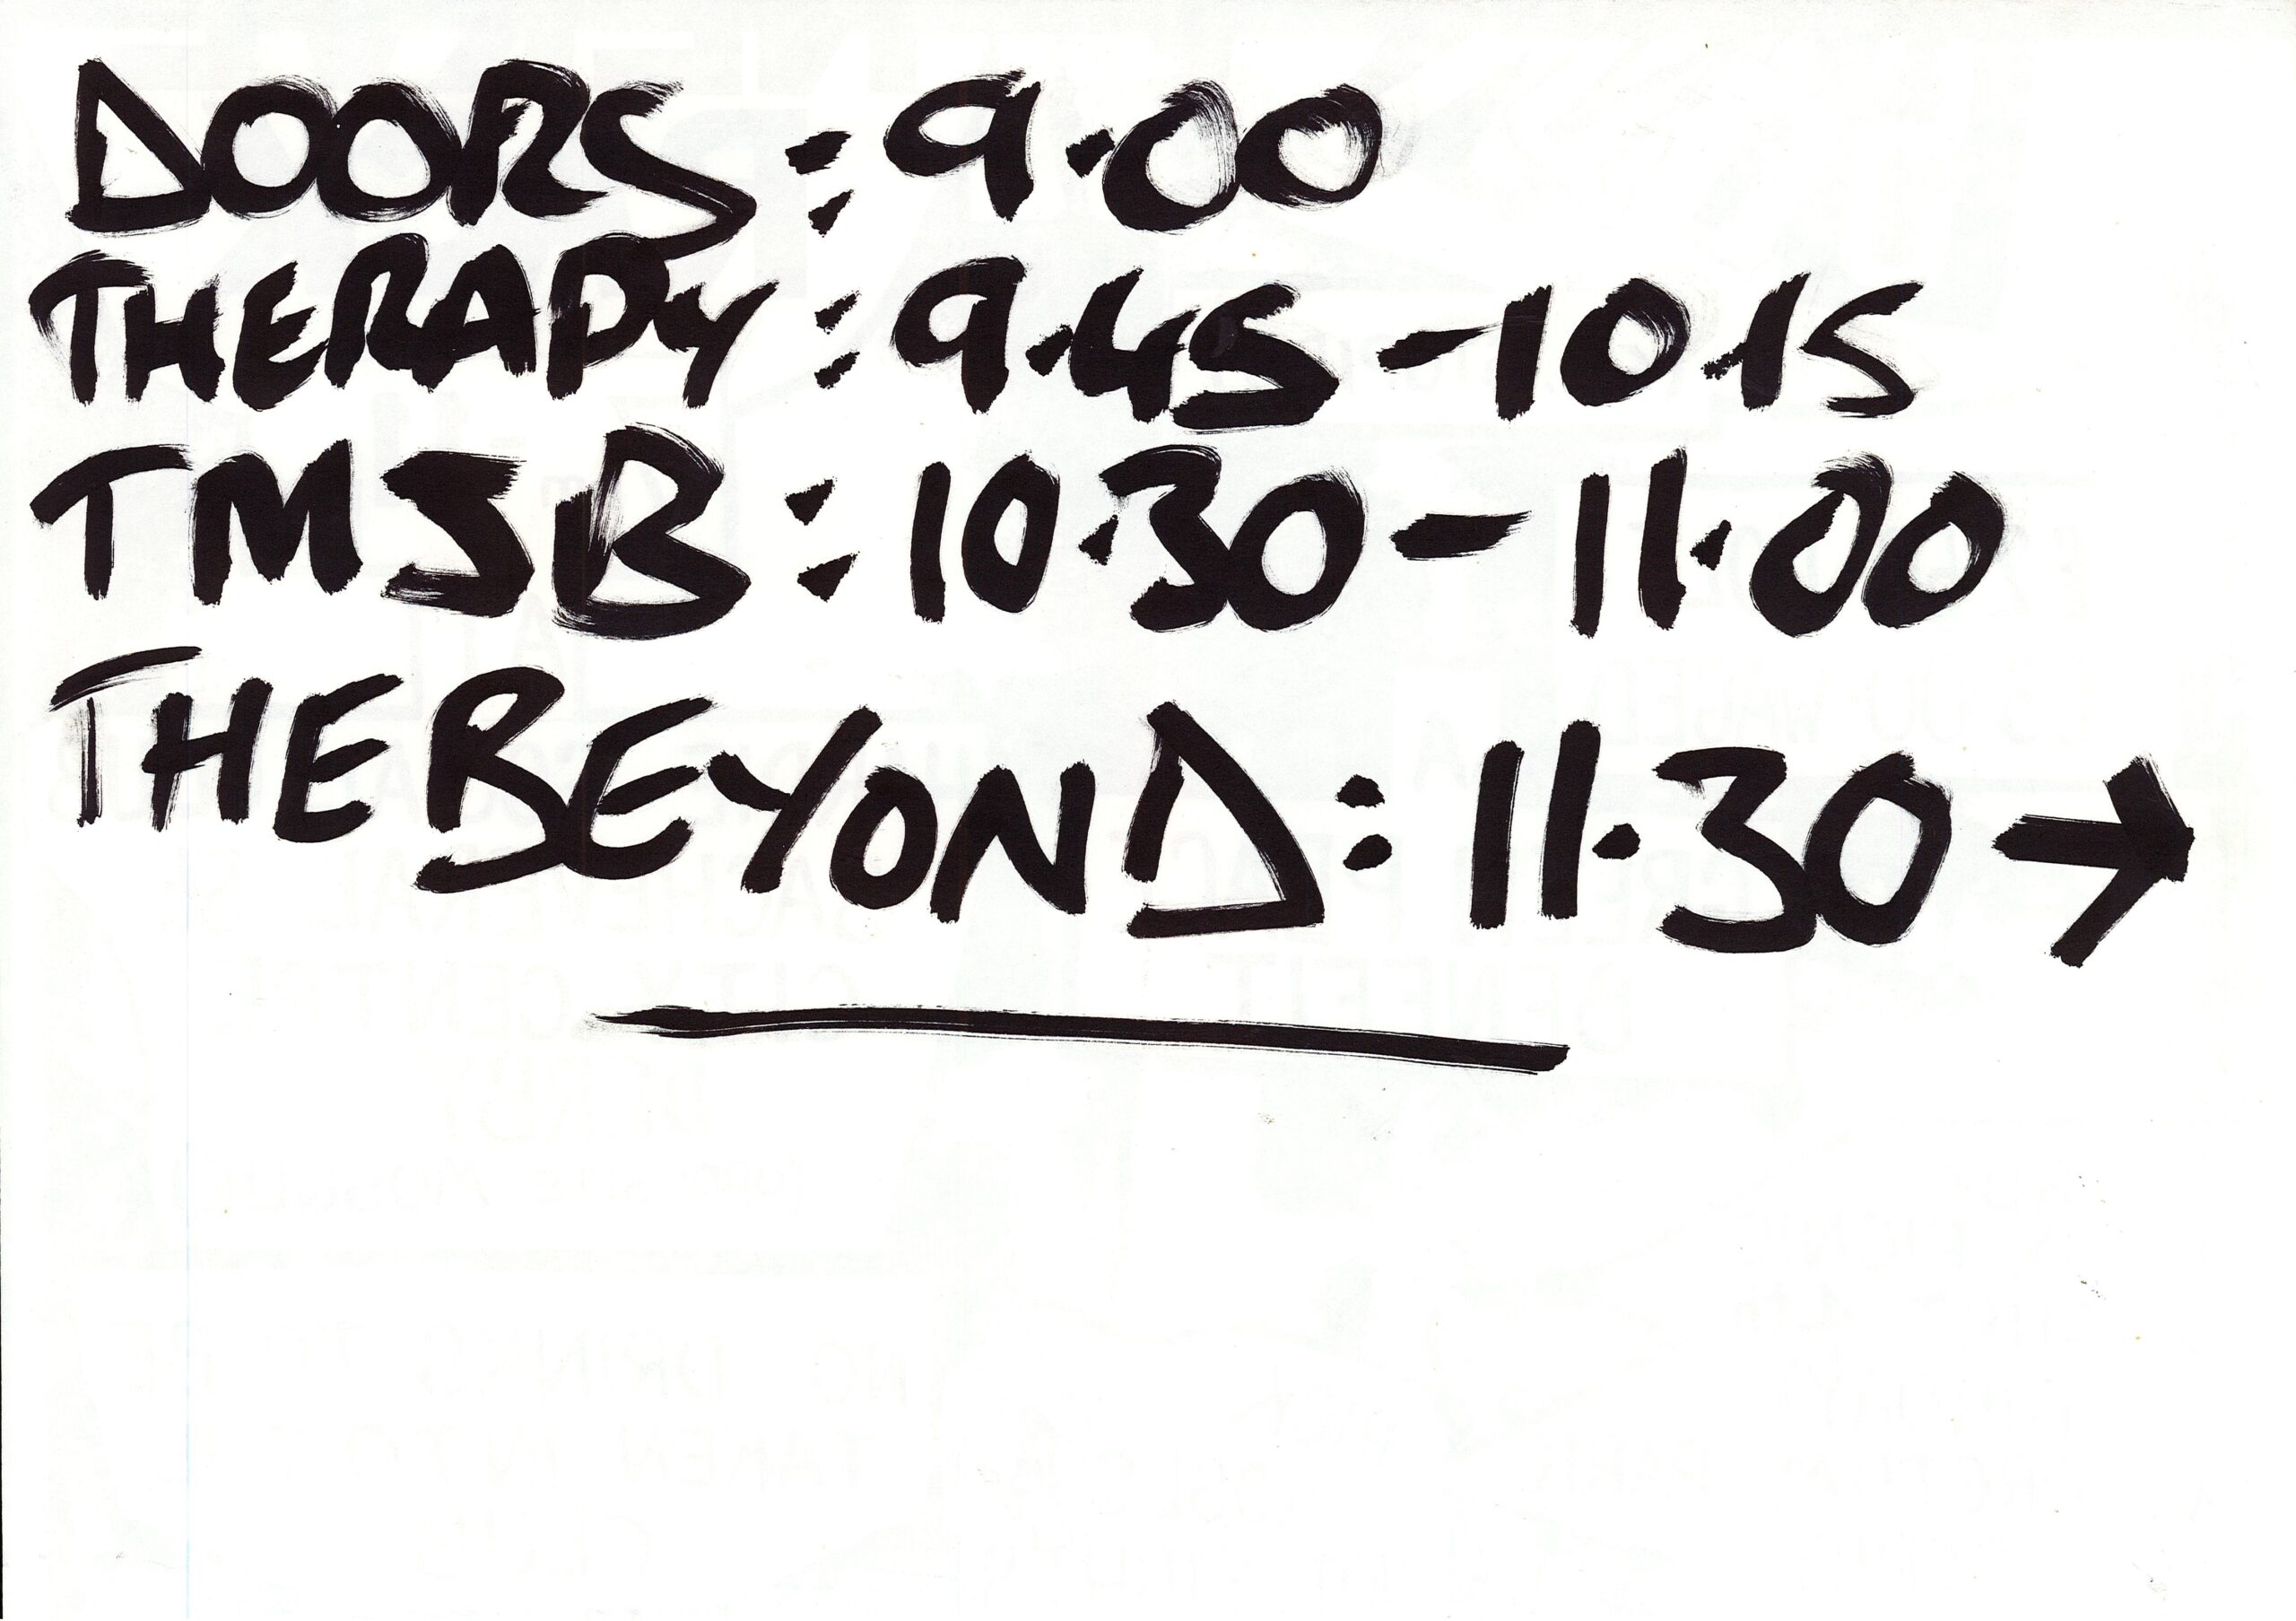 DOORS : 9.00
THERAPY : 9.45 - 10.15
TMSB : 10.30 - 11.00
THE BEYOND : 11.30 →